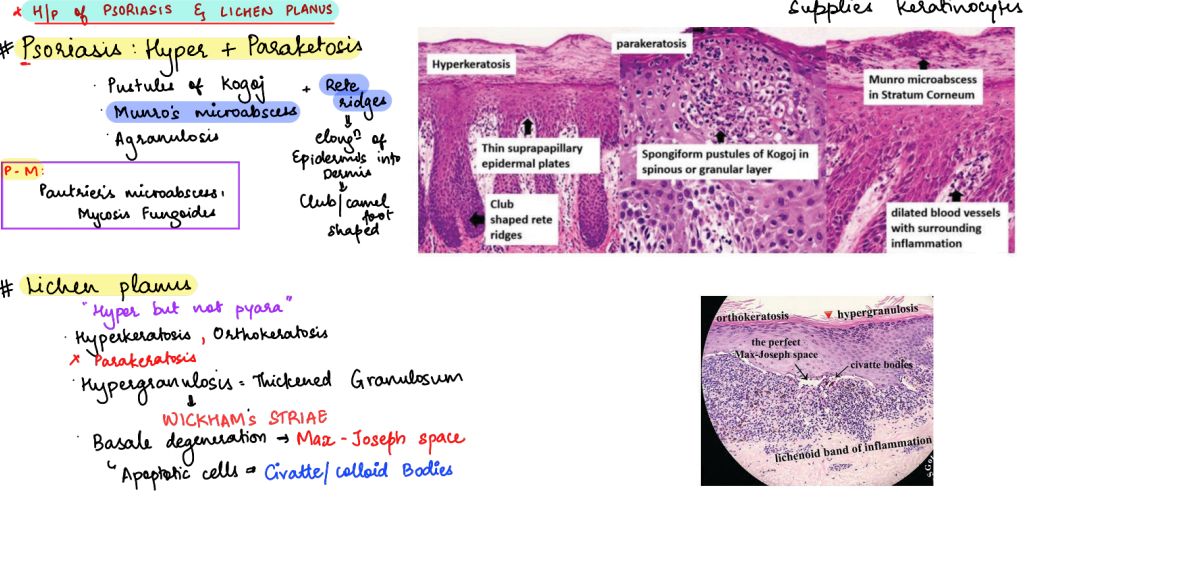 * H/p of PSORIASIS & LICHEN PLANUS
Supplies Keratinocytes
# Psoriasis : Hyper + Paraketosis
· Pustules of Kogoj
· Munro's microabscess
· Agranulosis
+ Rete
ridges
⇓
elongⁿ of
Epidermis into
Dermis
↓
Club/camel
foot
shaped
P-M:
Pautrier's microabscess,
Mycosis Fungoides
Hyperkeratosis
Thin suprapapillary
epidermal plates
Club
shaped rete
ridges
parakeratosis
Spongiform pustules of Kogoj in
spinous or granular layer
Munro microabscess
in Stratum Corneum
dilated blood vessels
with surrounding
inflammation
# Lichen planus
"Hyper but not pyara"
· Hyperkeratosis, Orthokeratosis
x Parakeratosis
· Hypergranulosis = Thickened Granulosum
↓
WICKHAM's STRIAE
· Basale degeneration → Max-Joseph space
↳ Apoptotic cells ⇒ Civatte/colloid Bodies
orthokeratosis
hypergranulosis
the perfect
Max-Joseph space
civatte bodies
lichenoid band of inflammation